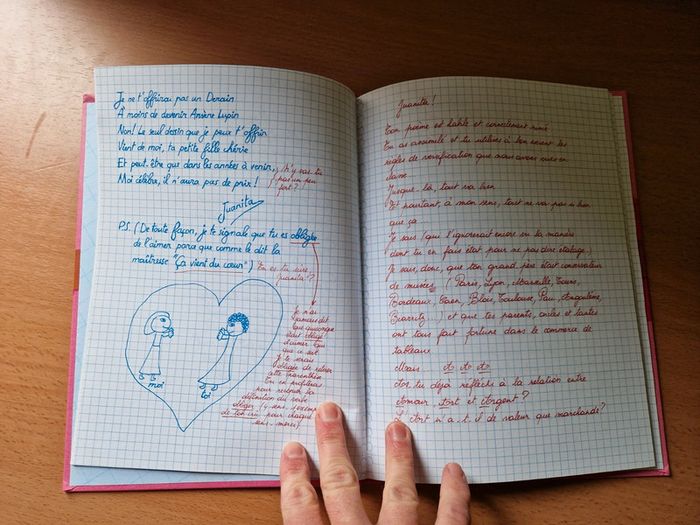 Je ne t'offrirai pas un Derain
À moins de devenir Arsène Lupin
Non! Le seul dessin que je peux t'offrir
Vient de moi, ta petite fille chérie
Et peut-être que dans les années à venir,
Moi célèbre, il n'aura pas de prix!
N'y vas-tu
pas un peu
fort?
Juanita
P.S. (De toute façon, je te signale que tu es obligée
de l'aimer parce que comme le dit la
maîtresse "Ça vient du cœur")
En es-tu sûre
Juanita!?
moi
toi
Je n'ai
jamais dit
que quiconque
était obligé
d'aimer quoi
que ce soit
Je te serais
obligée de retirer
cette parenthèse
Tu en profiteras
pour recopier la
définition du verbe
obliger (4 sens, 1 exemple
de ton cru pour chaque
sens. merci)
Juanita!
Ton poème est habile et correctement rimé
Tu as assimilé et tu utilises à bon escient les
règles de versification que nous avons vues en
classe.
Jusque-là, tout va bien
Et pourtant, à mon sens, tout ne va pas si bien
que ça.
Je sais (qui l'ignorerait encore vu la manière
dont tu en fais état pour ne pas dire étalage)
Je sais, donc, que ton grand-père était conservateur
de musées (Paris, Lyon, Marseille, Tours,
Bordeaux, Caen, Blois, Toulouse, Pau, Angoulême,
Biarritz...) et que tes parents, oncles et tantes
ont tous fait fortune dans le commerce de
tableaux
Mais
As-tu déjà réfléchi à la relation entre
Amour, Art et Argent?
L'Art n'a-t-il de valeur que marchande?